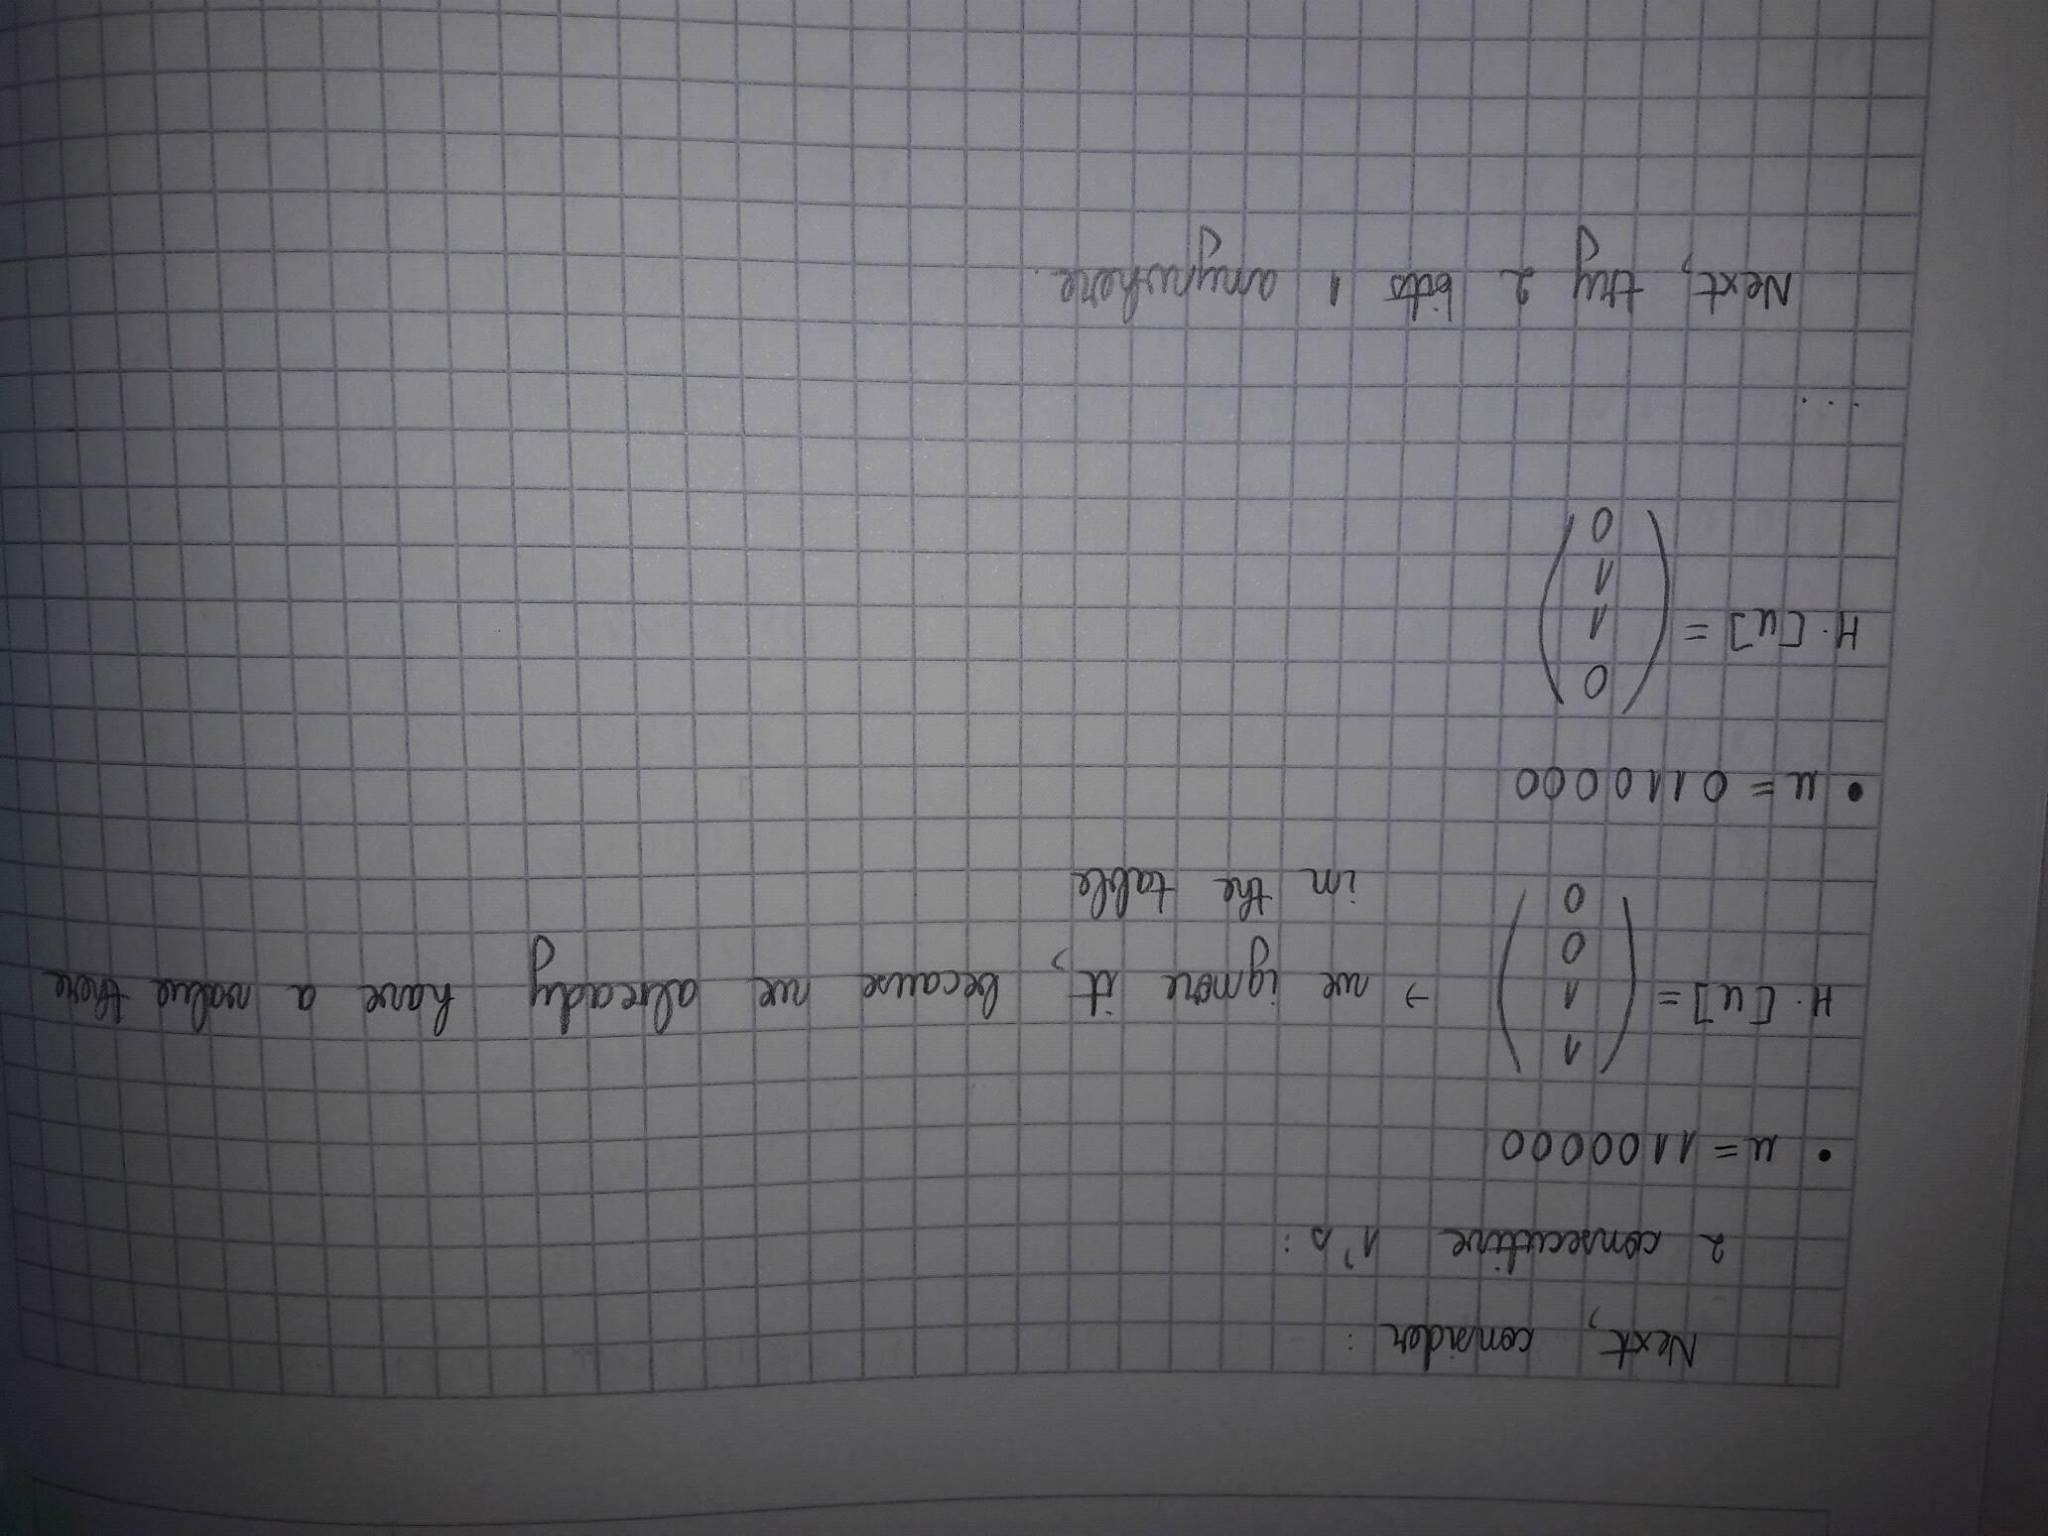 Next, consider:
2 consecutive 1's:
• u = 1100000
H·[u] = (1 1 0 0) → we ignore it, because we already have a value there
in the table
• u = 0110000
H·[u] = (0 1 1 0)
...
Next, try 2 bits 1 anywhere.